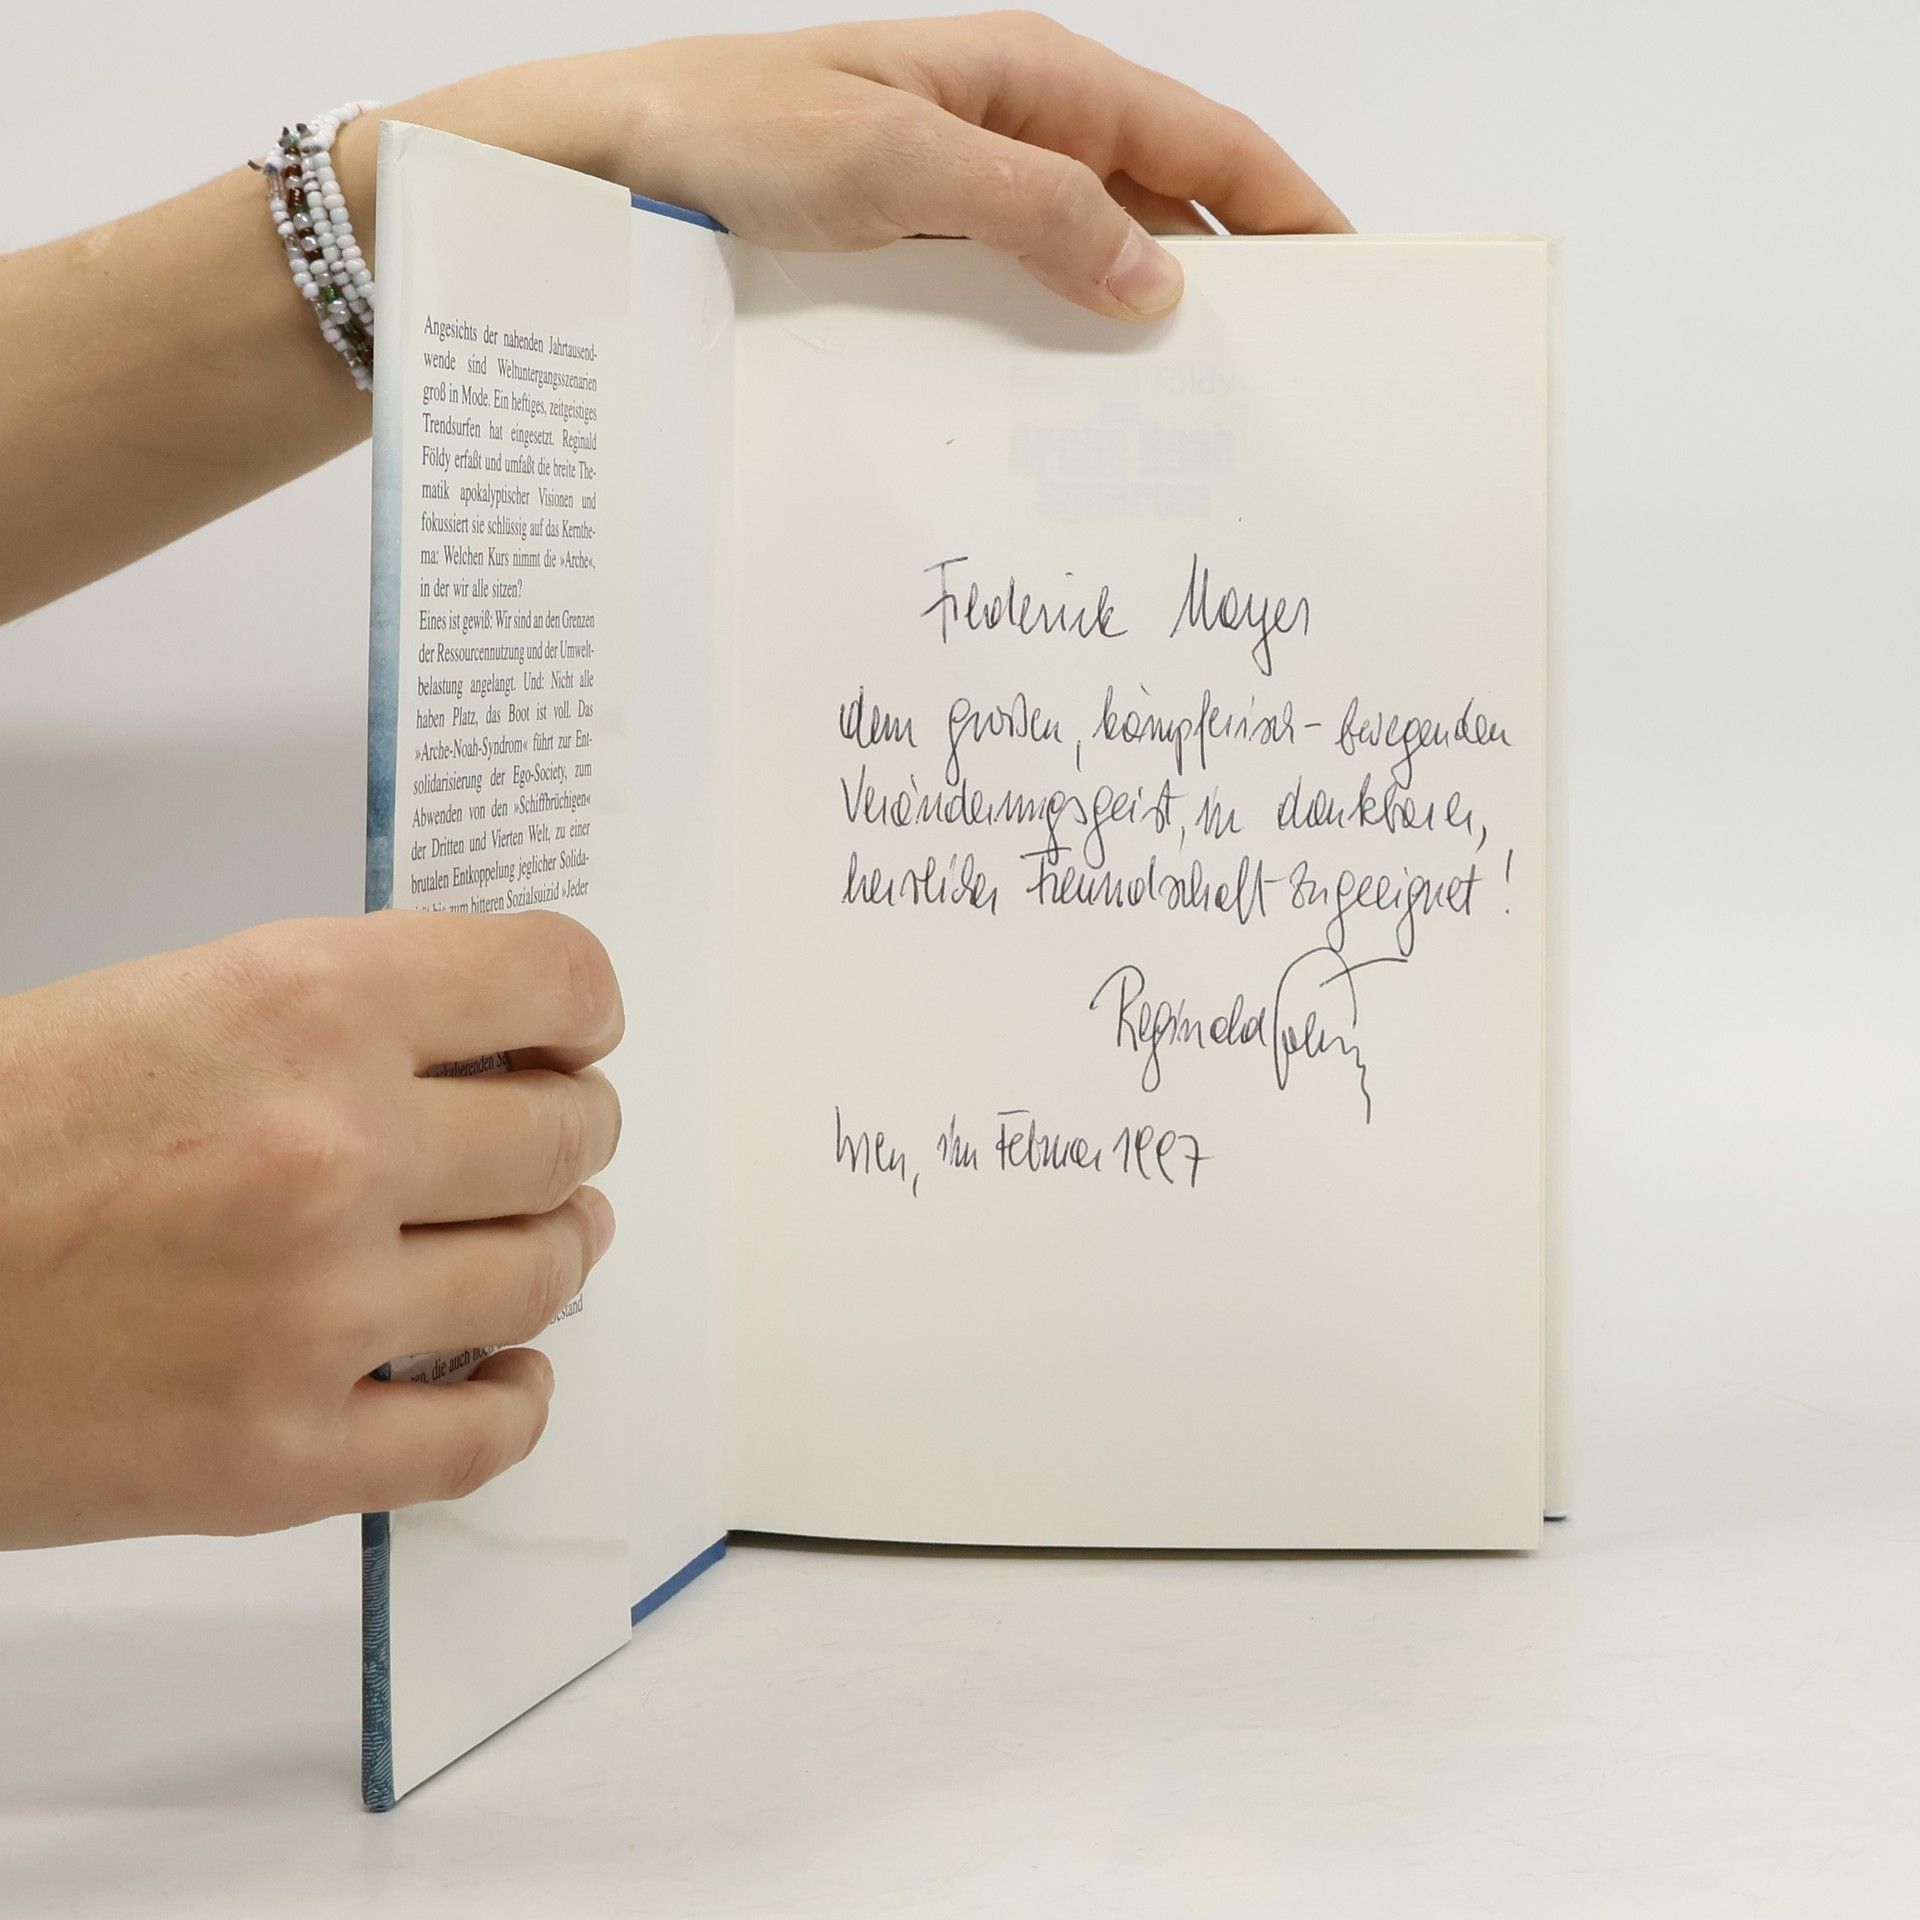 Angesichts der nahenden Jahrtausend-
wende sind Weltuntergangsszenarien
groß in Mode. Ein heftiges, zeitgeistiges
Trendsurfen hat eingesetzt. Reginald
Földy erfaßt und umfaßt die breite The-
matik apokalyptischer Visionen und
fokussiert sie schlüssig auf das Kernthe-
ma: Welchen Kurs nimmt die »Arche«,
in der wir alle sitzen?
Eines ist gewiß: Wir sind an den Grenzen
der Ressourcennutzung und der Umwelt-
belastung angelangt. Und: Nicht alle
haben Platz, das Boot ist voll. Das
»Arche-Noah-Syndrom« führt zur Ent-
solidarisierung der Ego-Society, zum
Abwenden von den »Schiffbrüchigen«
der Dritten und Vierten Welt, zu einer
brutalen Entkoppelung jeglicher Solida-
zum bitteren Sozialsuizid »Jeder
die auch
Frederick Mayer
dem großen, kämpferisch-bewegenden
Veränderungsgeist, in dankbarer,
herzlicher Freundschaft zugeeignet!
Reginald Földy
Wien, im Februar 1997